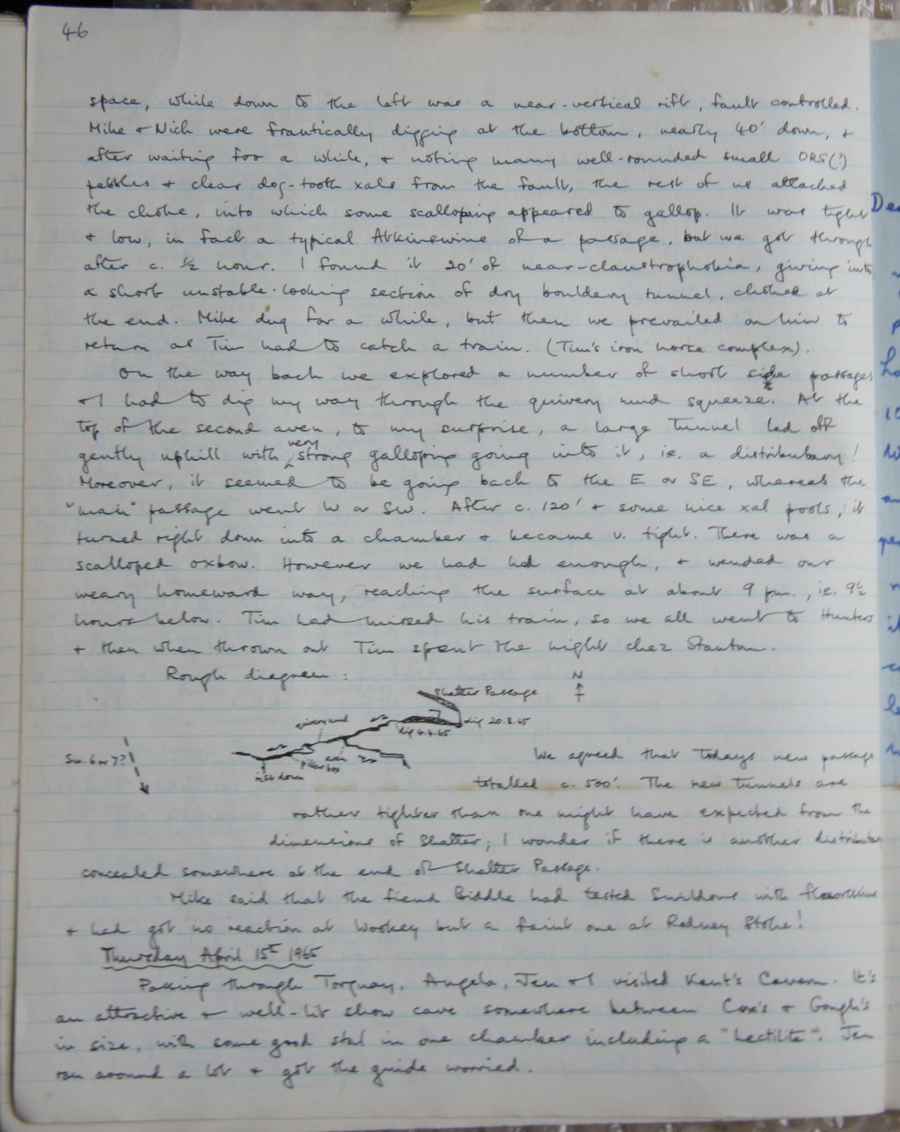 46
space, while down to the left was a near-vertical rift, fault controlled.
Mike & Nick were frantically digging at the bottom, nearly 40' down, &
after waiting for a while, & noting many well-rounded small ORS(?)
pebbles & clear dog-tooth xals from the fault, the rest of us attacked
the choke, into which some scalloping appeared to gallop. It was tight
& low, in fact a typical Atkinswine of a passage, but we got through
after c. ½ hour. I found it 20' of near-claustrophobia, giving into
a short unstable-looking section of dry bouldery tunnel, choked at
the end. Mike dug for a while, but then we prevailed on him to
return as Tim had to catch a train. (Tim's iron horse complex).
On the way back we explored a number of short side passages
& I had to dig my way through the quivery mud squeeze. At the
top of the second aven, to my surprise, a large tunnel led off
gently uphill with very strong galloping going into it, ie. a distributary!
Moreover, it seemed to be going back to the E or SE, whereas the
"main" passage went W or SW. After c. 120' & some nice xal pools, it
turned right down into a chamber & became v. tight. There was a
scalloped oxbow. However we had had enough, & wended our
weary homeward way, reaching the surface at about 9 pm., ie. 9½
hours below. Tim had missed his train, so we all went to Hunters
& then when thrown out Tim spent the night chez Stanton.
Rough diagram:
N
Shatter Passage
dig 20.3.65
dig 4.4.65
aven
Su. 6 or 7?
We agreed that todays new passage
totalled c. 500'. The new tunnels are
rather tighter than one might have expected from the
dimensions of Shatter; I wonder if there is another
concealed somewhere at the end of Shatter Passage.
Mike said that the fiend Biddle had tested Swildons with
& had got no reaction at Wookey but a faint one at Rodney Stoke!
Thursday April 15th 1965
Passing through Torquay, Angela, Jen & I visited Kent's Cavern. It's
an attractive & well-lit show cave somewhere between Cox's & Gough's
in size, with some good stal in one chamber including a "hectilite". Jen
ran around a lot & got the guide worried.